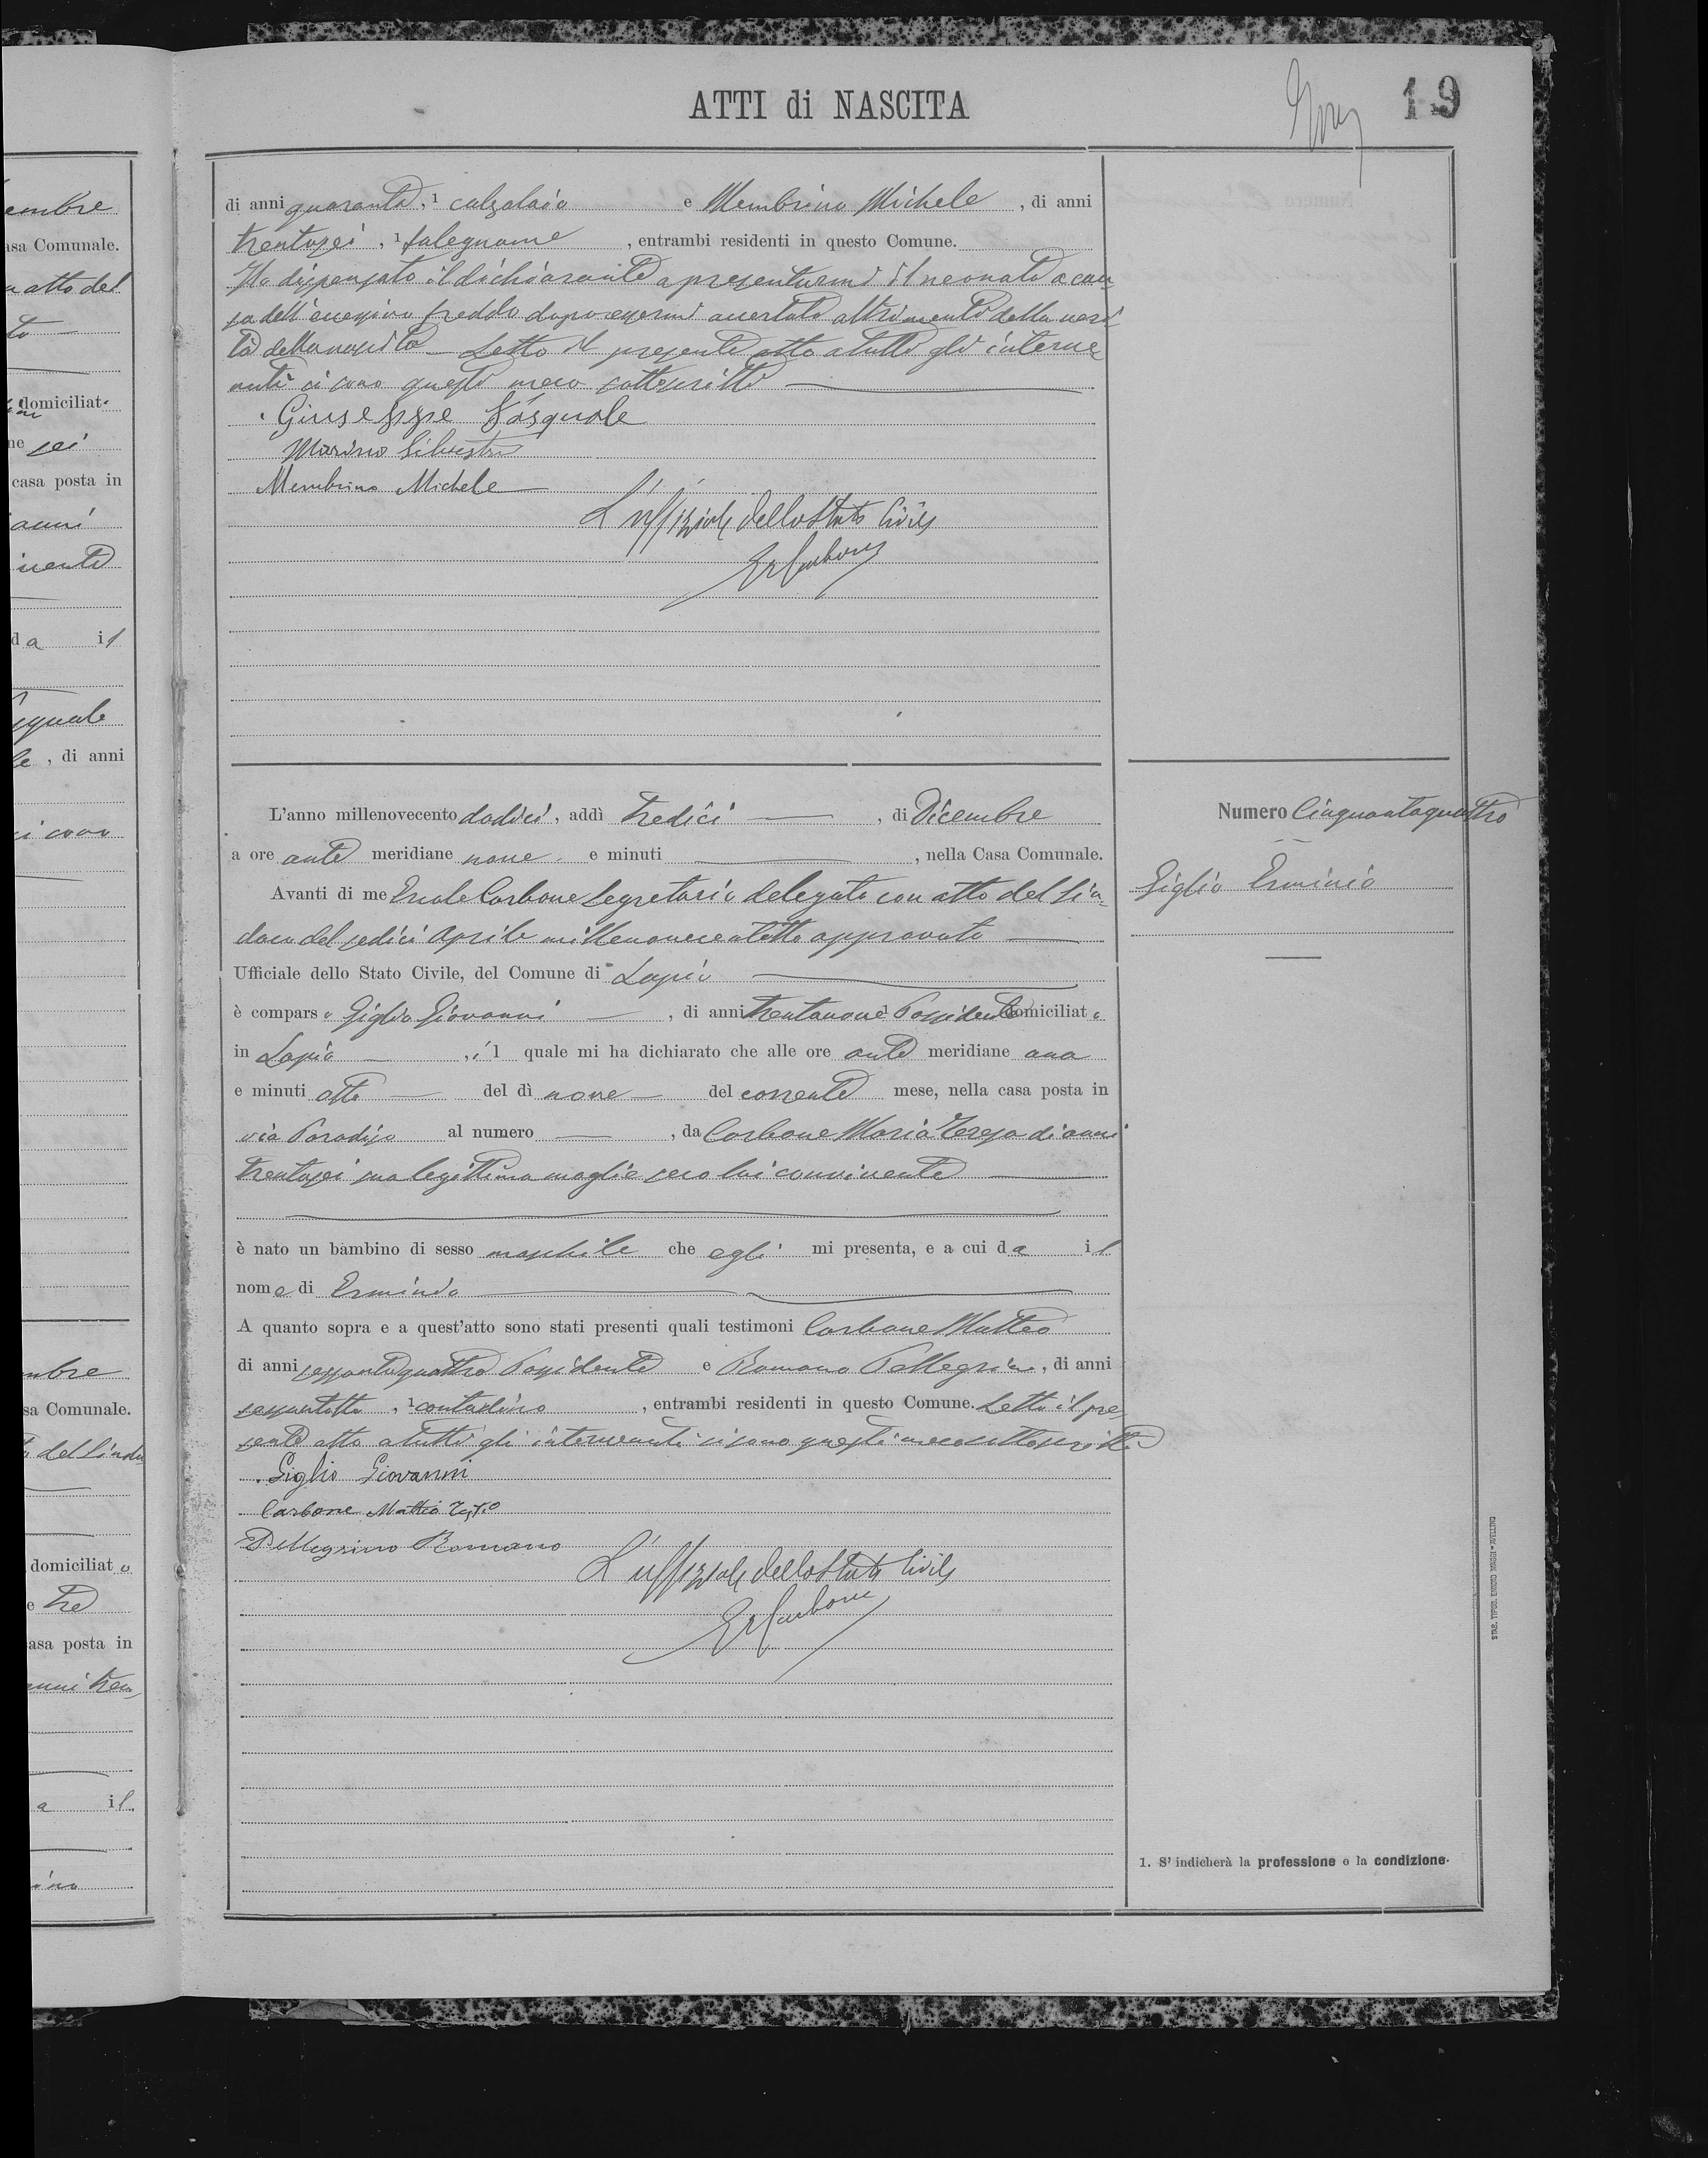 embre
asa Comunale.
n atto del
to
domiciliat
ne sei
casa posta in
anni
vente
d a il
squale
le , di anni
ci cono
mbre
sa Comunale.
del Sinda
domiciliat o
e tre
asa posta in
anni tren
a il
ino
ATTI di NASCITA
19
di anni quaranta, 1 calzolaio e Membrino Michele , di anni
trentasei , 1 falegname , entrambi residenti in questo Comune.
Ho dispensato il dichiarante a presentarmi il neonato a cau
sa dell'eccessivo freddo dopo essermi accertato altrimenti della veri
tà della nascita Letto il presente atto a tutti gli interve
nuti si sono questi meco sottoscritti
Giuseppe Pasquale
Marino Silvestro
Membrino Michele
L'uffiziale dello Stato Civile
Er Carbone
L'anno millenovecento dodici, addì tredici , di Dicembre
a ore ante meridiane nove e minuti , nella Casa Comunale.
Avanti di me Ercole Carbone Segretario delegato con atto del Sin
daco del sedici Aprile millenovecentotto approvato
Ufficiale dello Stato Civile, del Comune di Lapio
è compars o Giglio Giovanni , di anni trentanove 1 Possidente domiciliat o
in Lapio , il quale mi ha dichiarato che alle ore ante meridiane una
e minuti otto del dì nove del corrente mese, nella casa posta in
via Paradiso al numero , da Carbone Maria Teresa di anni
trentasei sua legittima moglie seco lui convivente
è nato un bambino di sesso maschile che egli mi presenta, e a cui d a il
nome di Erminio
A quanto sopra e a quest'atto sono stati presenti quali testimoni Carbone Matteo
di anni sessantaquattro Possidente e Romano Pellegrino, di anni
sessantotto , 1 contadino , entrambi residenti in questo Comune. Letto il pre
sente atto a tutti gli intervenuti si sono questi meco sottoscritti
Giglio Giovanni
Carbone Matteo Test.o
Pellegrino Romano
L'uffiziale dello Stato Civile
Er Carbone
Numero Cinquantaquattro
Giglio Erminio
1. S' indicherà la professione o la condizione.